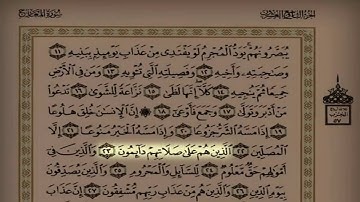 سُورَةُ المَعَارِجِ
الجزء التاسع والعشرون
يُبَصَّرُونَهُمْ يَوَدُّ الْمُجْرِمُ لَوْ يَفْتَدِي مِنْ عَذَابِ يَوْمِئِذٍ بِبَنِيهِ ١١
وَصَاحِبَتِهِ وَأَخِيهِ ١٢ وَفَصِيلَتِهِ الَّتِي تُئْوِيهِ ١٣ وَمَنْ فِي الْأَرْضِ
جَمِيعًا ثُمَّ يُنْجِيهِ ١٤ كَلَّا إِنَّهَا لَظَى ١٥ نَزَّاعَةً لِلشَّوَى ١٦ تَدْعُوا
مَنْ أَدْبَرَ وَتَوَلَّى ١٧ وَجَمَعَ فَأَوْعَى ١٨ إِنَّ الْإِنْسَانَ خُلِقَ هَلُوعًا
١٩ إِذَا مَسَّهُ الشَّرُّ جَزُوعًا ٢٠ وَإِذَا مَسَّهُ الْخَيْرُ مَنُوعًا ٢١ إِلَّا
الْمُصَلِّينَ ٢٢ الَّذِينَ هُمْ عَلَى صَلَاتِهِمْ دَائِمُونَ ٢٣ وَالَّذِينَ فِي
أَمْوَالِهِمْ حَقٌّ مَعْلُومٌ ٢٤ لِلسَّائِلِ وَالْمَحْرُومِ ٢٥ وَالَّذِينَ يُصَدِّقُونَ
بِيَوْمِ الدِّينِ ٢٦ وَالَّذِينَ هُمْ مِنْ عَذَابِ رَبِّهِمْ مُشْفِقُونَ ٢٧ إِنَّ عَذَابَ